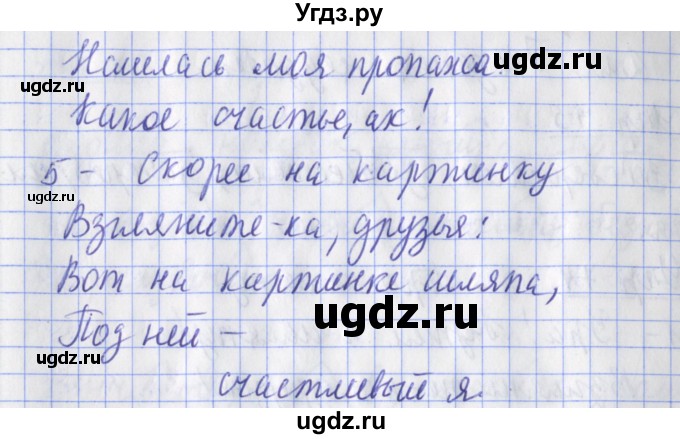 Угдз.ру
Нашлась моя пропажа.
Какое счастье, ах!
5 - Скорее на картинку
Взгляните-ка, друзья:
Вот на картинке шляпа,
Под ней –
счастливый я.
ugdz.ru
ugdz.ru
ugdz.ru
ugdz.ru
ugdz.ru
ugdz.ru
ugdz.ru
ugdz.ru